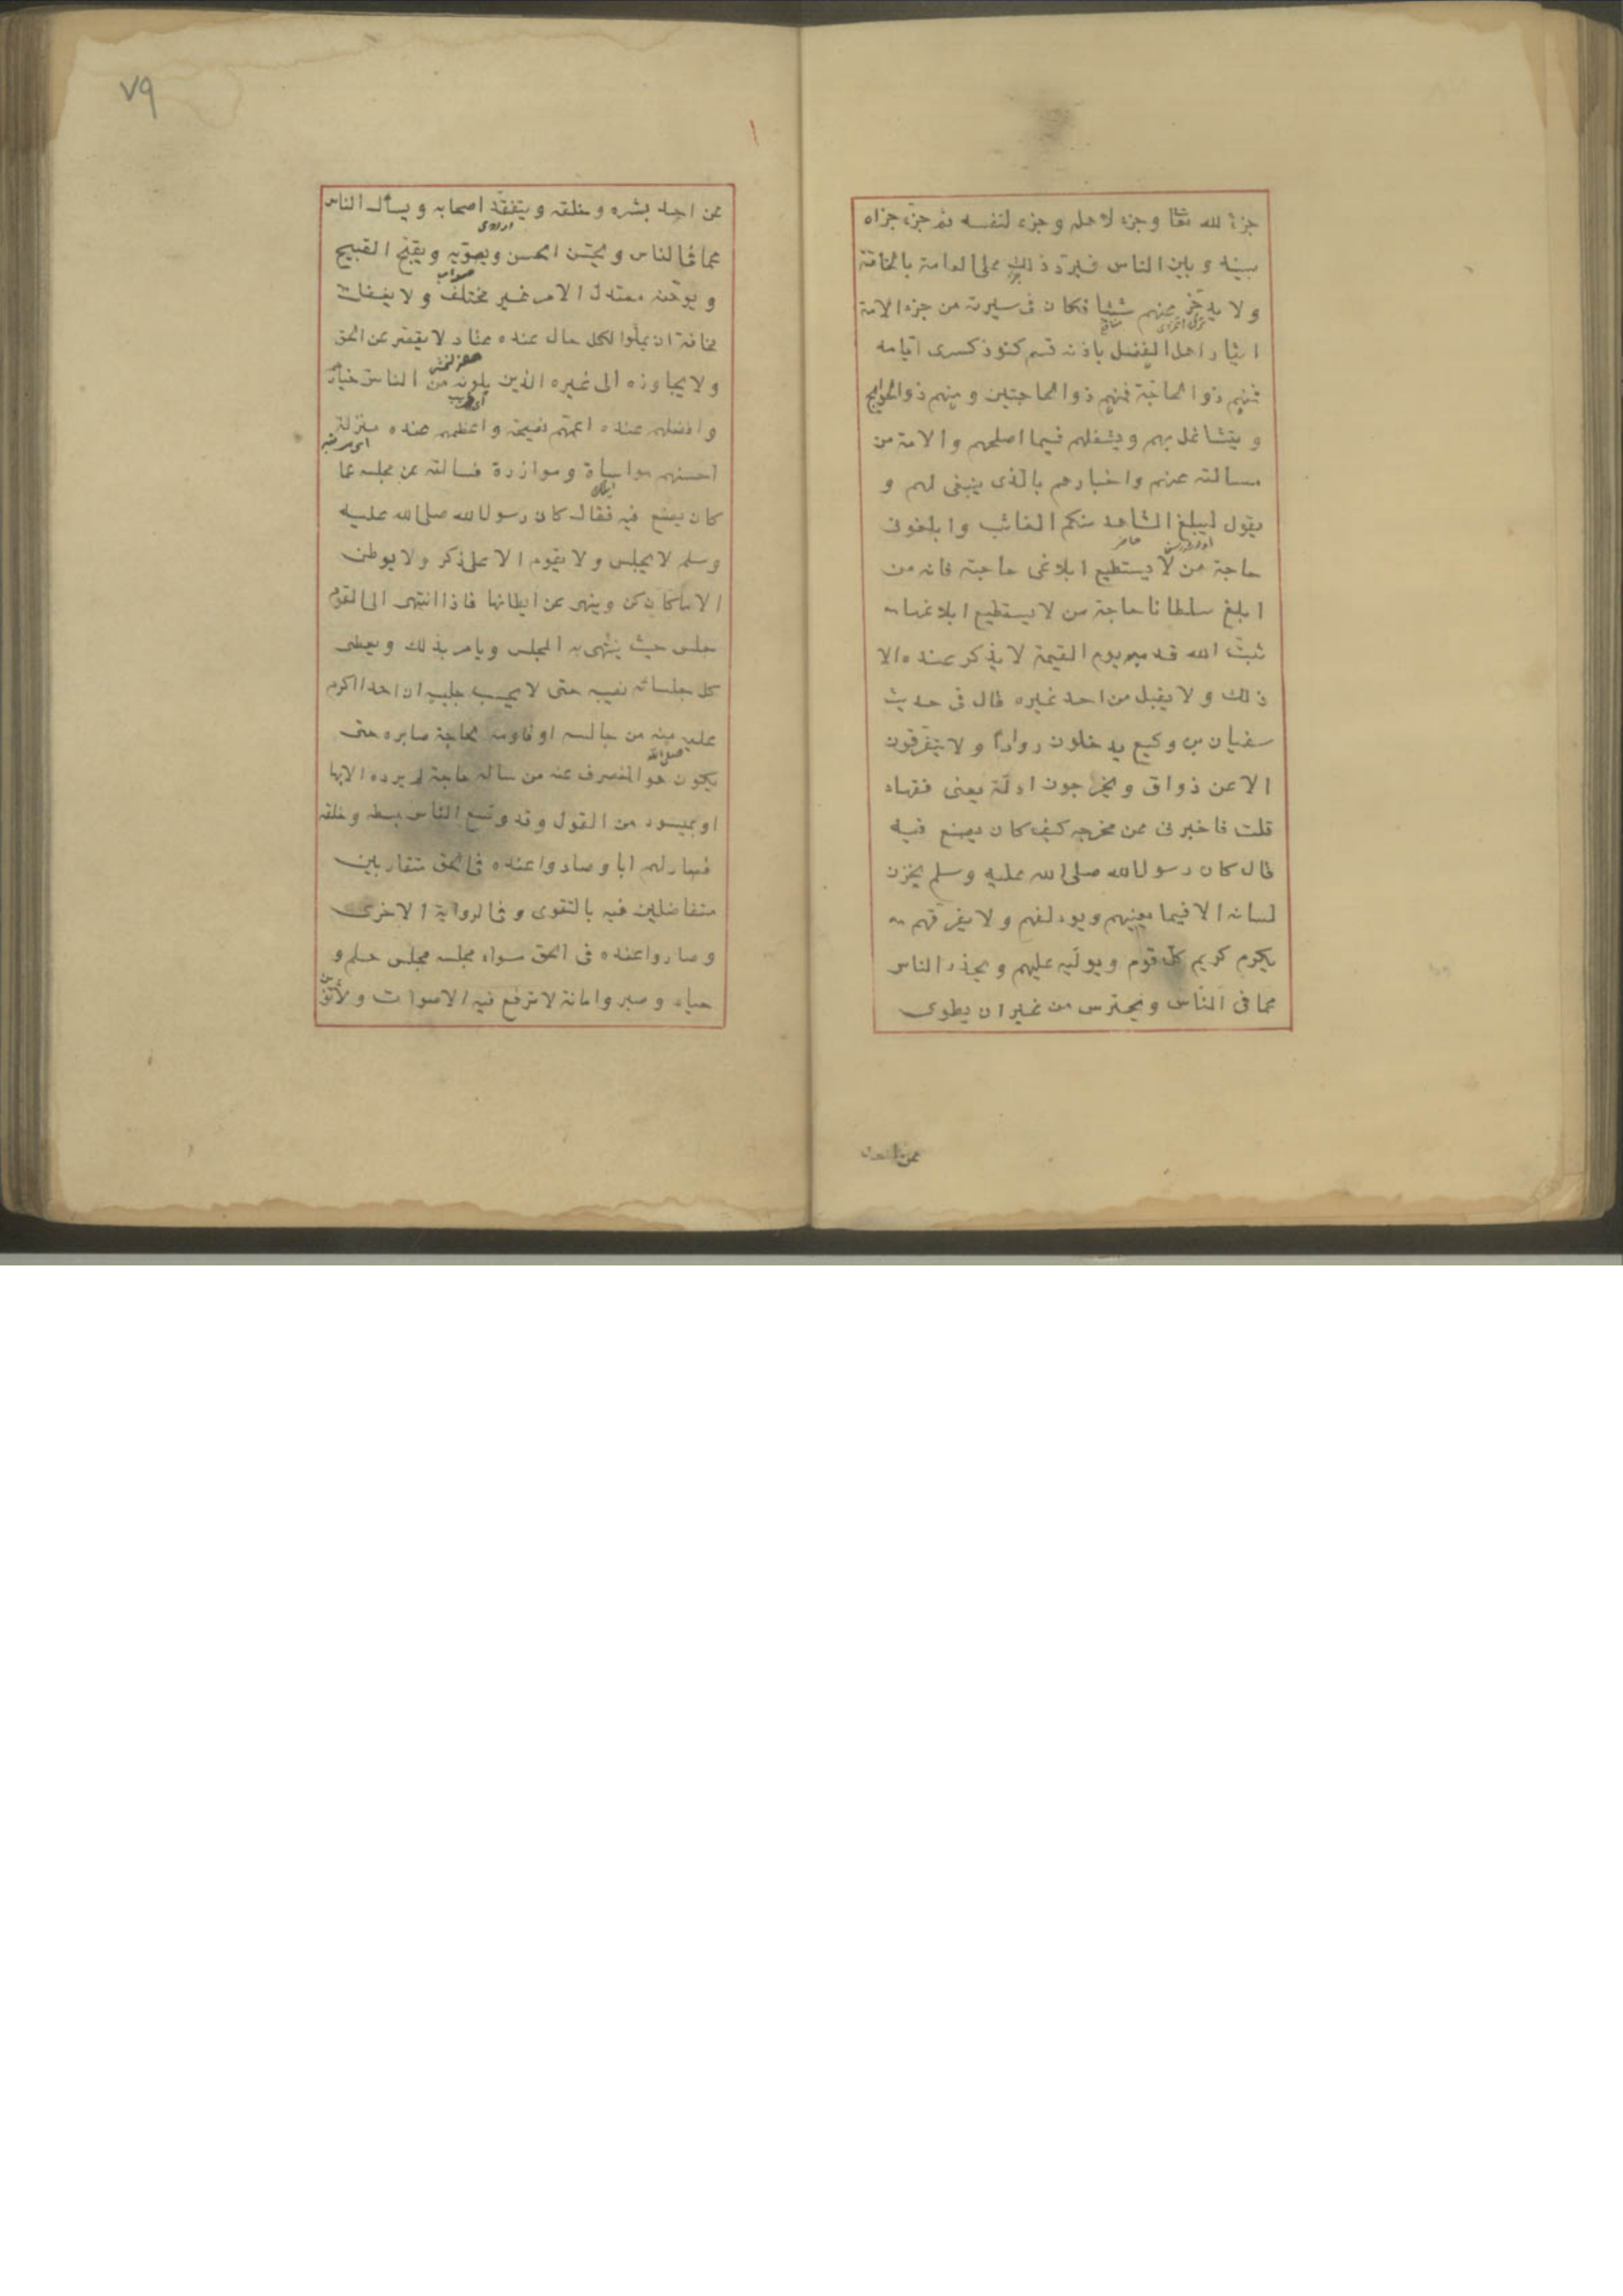 جزءً لله تعا وجزء لاهله وجزء لنفسه ثم جزّء جزاه
بينه وبين الناس فيردّ ذلك على العامة بالخاصّة
ولا يدّخر عنهم شيئا فكان فى سيرته من جزء الامة
ايثار اهل الفضل باذنه قسم كنوز كسرى
فمنهم ذو الحاجة فمنهم ذو الحاجتين ومنهم ذو الحوايج
ويتشاغل بهم ويشغلهم فيما اصلحهم والامة من
مسالته عنهم واخبارهم بالذى ينبغى لهم و
يقول ليبلغ الشاهد منكم الغائب وابلغونى
حاضر
حاجة من لا يستطيع ابلاغى حاجته فانه من
ابلغ سلطانا حاجة من لا يستطيع ابلاغها
ثبّت الله قدميه يوم القيمة لا يذكر عنده الا
ذلك ولا يقبل من احد غيره قال فى حديث
سفيان بن وكيع يدخلون روادا ولا يتفرقون
الا عن ذواق ويخرجون ادلّة يعنى فقهاء
قلت فاخبرنى عن مخرجه كيف كان يصنع فيه
قال كان رسول الله صلى الله عليه وسلم يخزن
لسانه الا فيما يعنيهم ويولفهم ولا يفرقهم
يكرم كريم كل قوم ويولّيه عليهم ويحذر الناس
مما فى الناس ويحترس من غير ان يطوى
عن احد
٧٩
عن احد بشره وخلقه ويتفقد اصحابه ويسأل الناس
عما فى الناس ويحسّن الحسن ويصوّبه ويقبّح القبيح
ويوهّنه معتدل الامر غير مختلف ولا يغفل
مخافة ان يملّوا لكل حال عنده عتاد لا يقصر عن الحق
ولا يجاوزه الى غيره الذين يلونه من الناس خيارهم
وافضلهم عنده اعمّهم نصيحة واعظمهم عنده منزلة
احسنهم مواساة وموازرة فسالته عن مجلسه عما
كان يصنع فيه فقال كان رسول الله صلى الله عليه
وسلم لا يجلس ولا يقوم الا على ذكر ولا يوطن
الاماكن وينهى عن ايطانها فاذا انتهى الى القوم
جلس حيث ينتهى به المجلس ويامر بذلك ويعطى
كل جلسائه نصيبه حتى لا يحسب جليسه ان احدا اكرم
عليه منه من جالسه او قاومه لحاجة صابره حتى
يكون هو المنصرف عنه من ساله حاجة لم يرده الا بها
او بميسور من القول وقد وسع الناس بسطه وخلقه
فصار لهم ابا وصاروا عنده فى الحق متقاربين
متفاضلين فيه بالتقوى وفى الرواية الاخرى
وصاروا عنده فى الحق سواء مجلسه مجلس حلم و
حياء وصبر وامانة لا ترفع فيه الاصوات ولا تؤبن